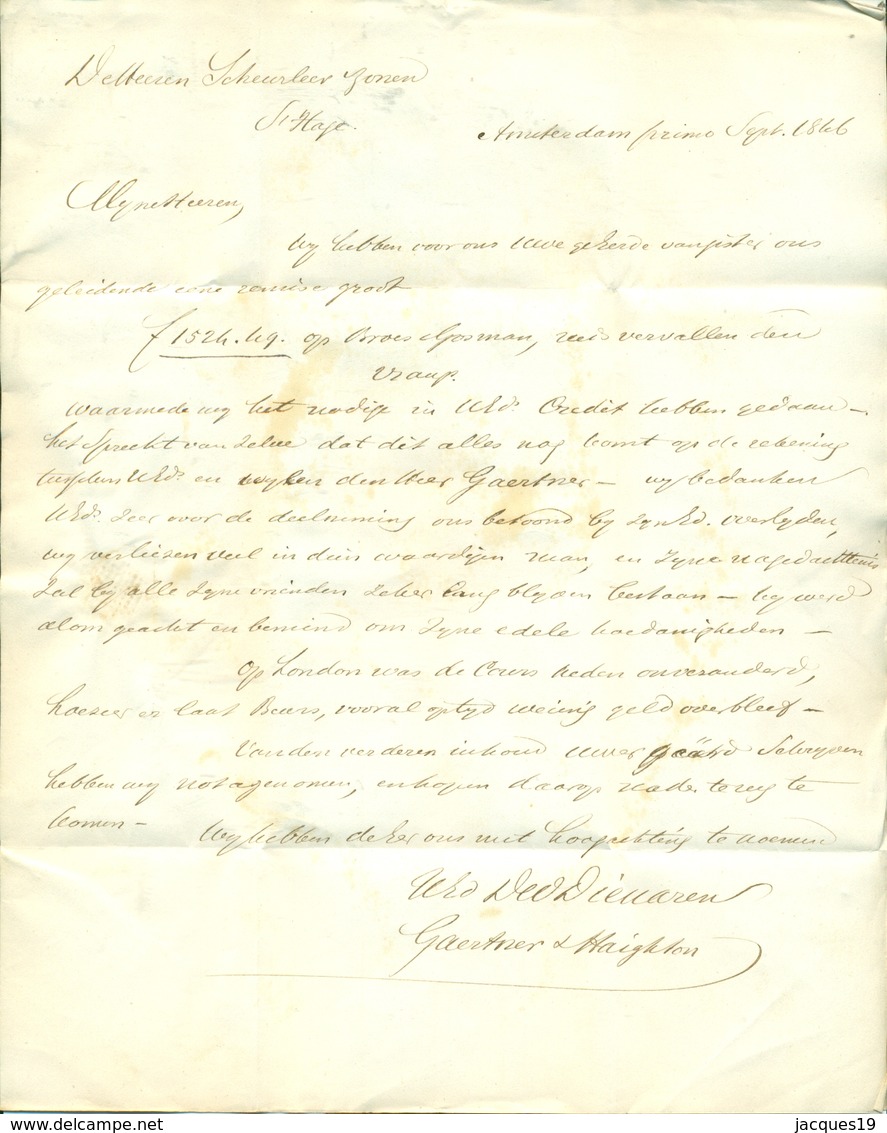 De Heeren Scheurleer & Zonen
S' Hage.
Amsterdam primo Sept. 1846
Myne Heeren,
Wy hebben voor ons Uwe geëerde van gister ons
geleidende eene remise groot
f 1524.49. op Broes & Gosman, reis vervallen den
waarmede wy het nodige in UEds. Credit hebben gedaan –
het spreekt van zelve dat dit alles nog komt op de rekening
tusschen UEds. en wylen den Heer Gaertner – wy bedanken
UEds. zeer voor de deelneming ons betoond by zyn Ed. overlyden,
wy verliezen veel in dien waardigen man, en zyne nagedachtenis
zal by alle zyne vrienden zeker lang blyven bestaan – hy werd
alom geacht en bemind om zyne edele hoedanigheden –
Op London was de Cours heden onveranderd,
hoezeer er laat Beurs, vooral op tyd weinig geld overbleef –
Van den verderen inhoud uwer geëerd schryven
hebben wy nota genomen, en hopen daarop nader terug te
komen –
Wy hebben de eer ons met hoogachting te noemen
UEd DWDienaren
Gaertner & Haighton
delcampe.net
jacques19